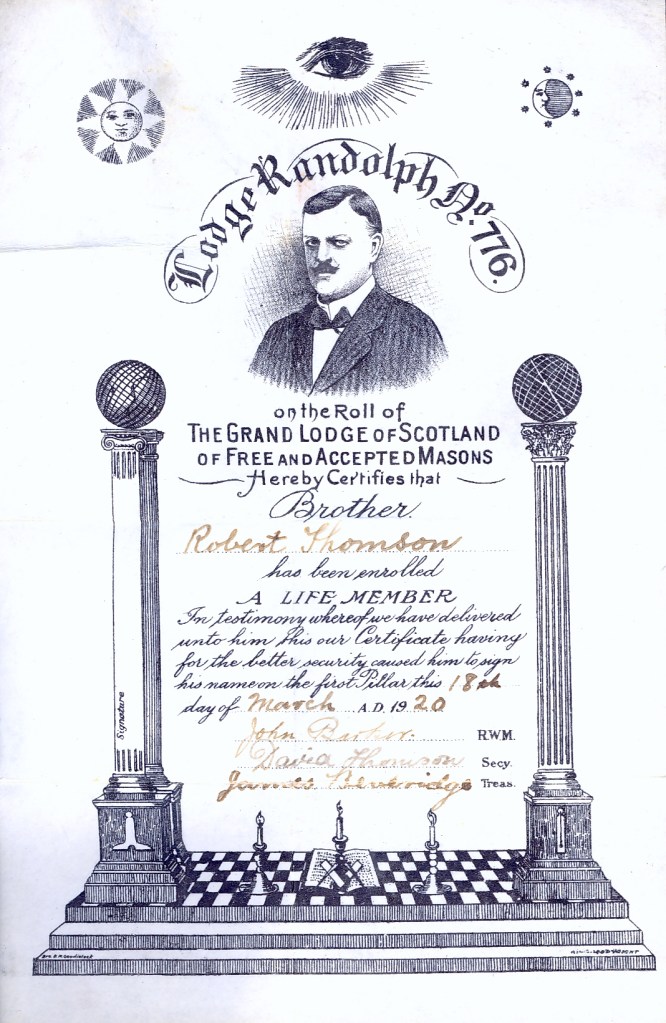 Lodge Randolph No. 776.
on the Roll of
THE GRAND LODGE OF SCOTLAND
OF FREE AND ACCEPTED MASONS
Hereby Certifies that
Brother.
Robert Thomson
has been enrolled
A LIFE MEMBER
In testimony whereof we have delivered
unto him this our Certificate having
for the better security caused him to sign
his name on the first Pillar this 18th
day of March A.D. 1920
Signature
John Barker. RWM.
David Thomson Secy.
James Beveridge Treas.